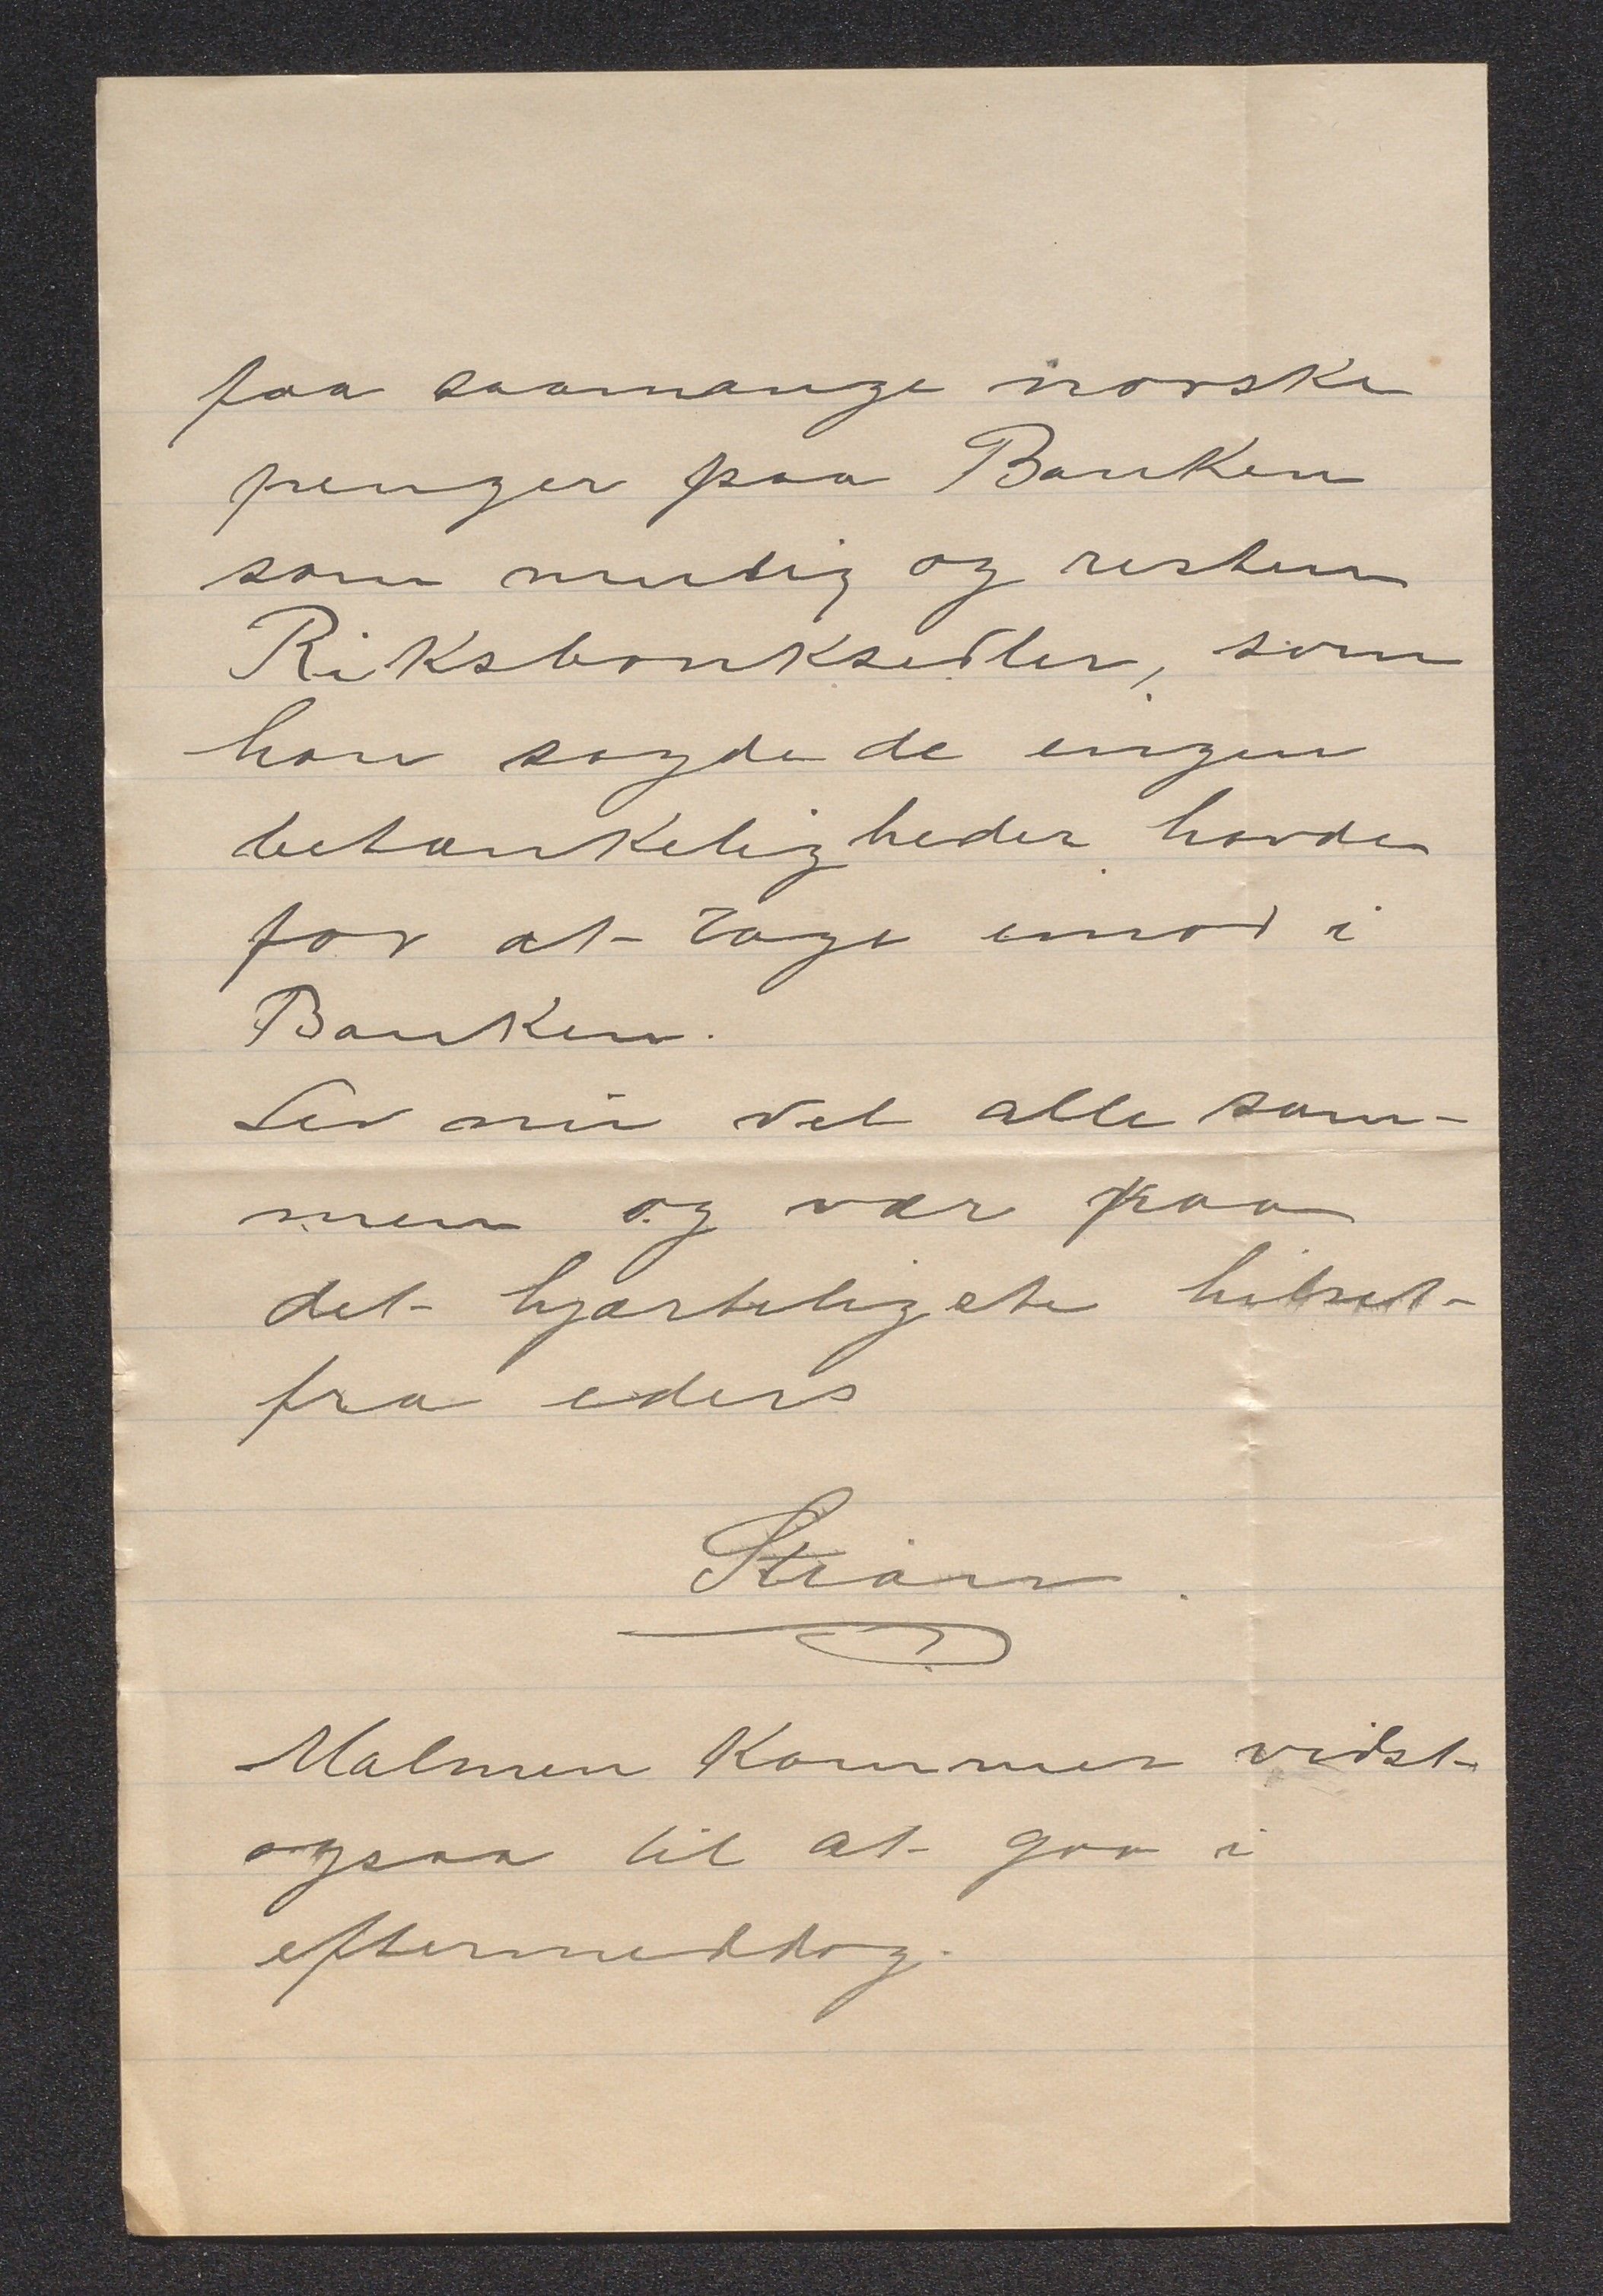 faa saamange norske
penger paa Banken
som mulig og resten
Riksbanksedler, som
han sagde de ingen
betænkeligheder havde
for at tage imod i
Banken.
Lev nu vel alle sam-
men og vær paa
det hjærteligste hilset
fra eders
Malmen kommer vidst
ogsaa til at gaa i
eftermeddag.